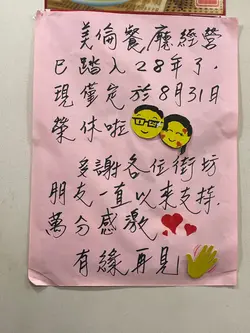 美倫餐廳經營
已踏入28年了.
現僅定於8月31日
榮休啦
多謝各位街坊
朋友一直以來支持.
萬分感激
有緣再見